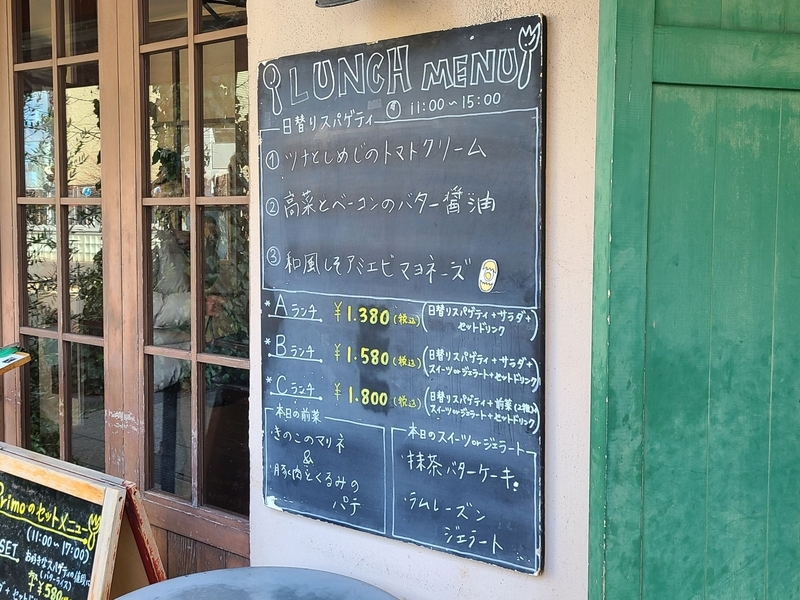 LUNCH MENU
11:00~15:00
日替りスパゲティ
① ツナとしめじのトマトクリーム
② 高菜とベーコンのバター醤油
③ 和風しそアミエビマヨネーズ
*Aランチ ¥1.380(税込)(日替りスパゲティ+サラダ+
セットドリンク)
*Bランチ ¥1.580(税込)(日替りスパゲティ+サラダ+
スイーツorジェラート+セットドリンク)
*Cランチ ¥1.800(税込)(日替りスパゲティ+前菜(2種)+
スイーツorジェラート+セットドリンク)
本日の前菜
・きのこのマリネ
&
・豚肉とくるみの
パテ
本日のスイーツorジェラート
・抹茶バターケーキ
・ラムレーズン
ジェラート
Primoのセットメニュー
(11:00~17:00)
SET お好きなスパゲティの値段に
(バターライス)
+¥580